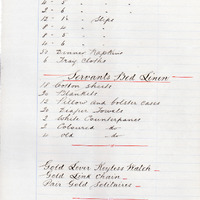 6 - 4 "
2 - 6 "
12 - 1½ " Slips
4 - "
8 - 5 "
4 - 6 "
30 Dinner Napkins
6 Tray Cloths
Servants Bed Linen
11 Cotton Sheets
20 Blankets
12 Pillow and bolster cases
20 Diaper Towels
2 White Counterpanes
2 Coloured do
4 old do
Gold Lever Keyless Watch
Gold Link Chain
Pair Gold Solitaires